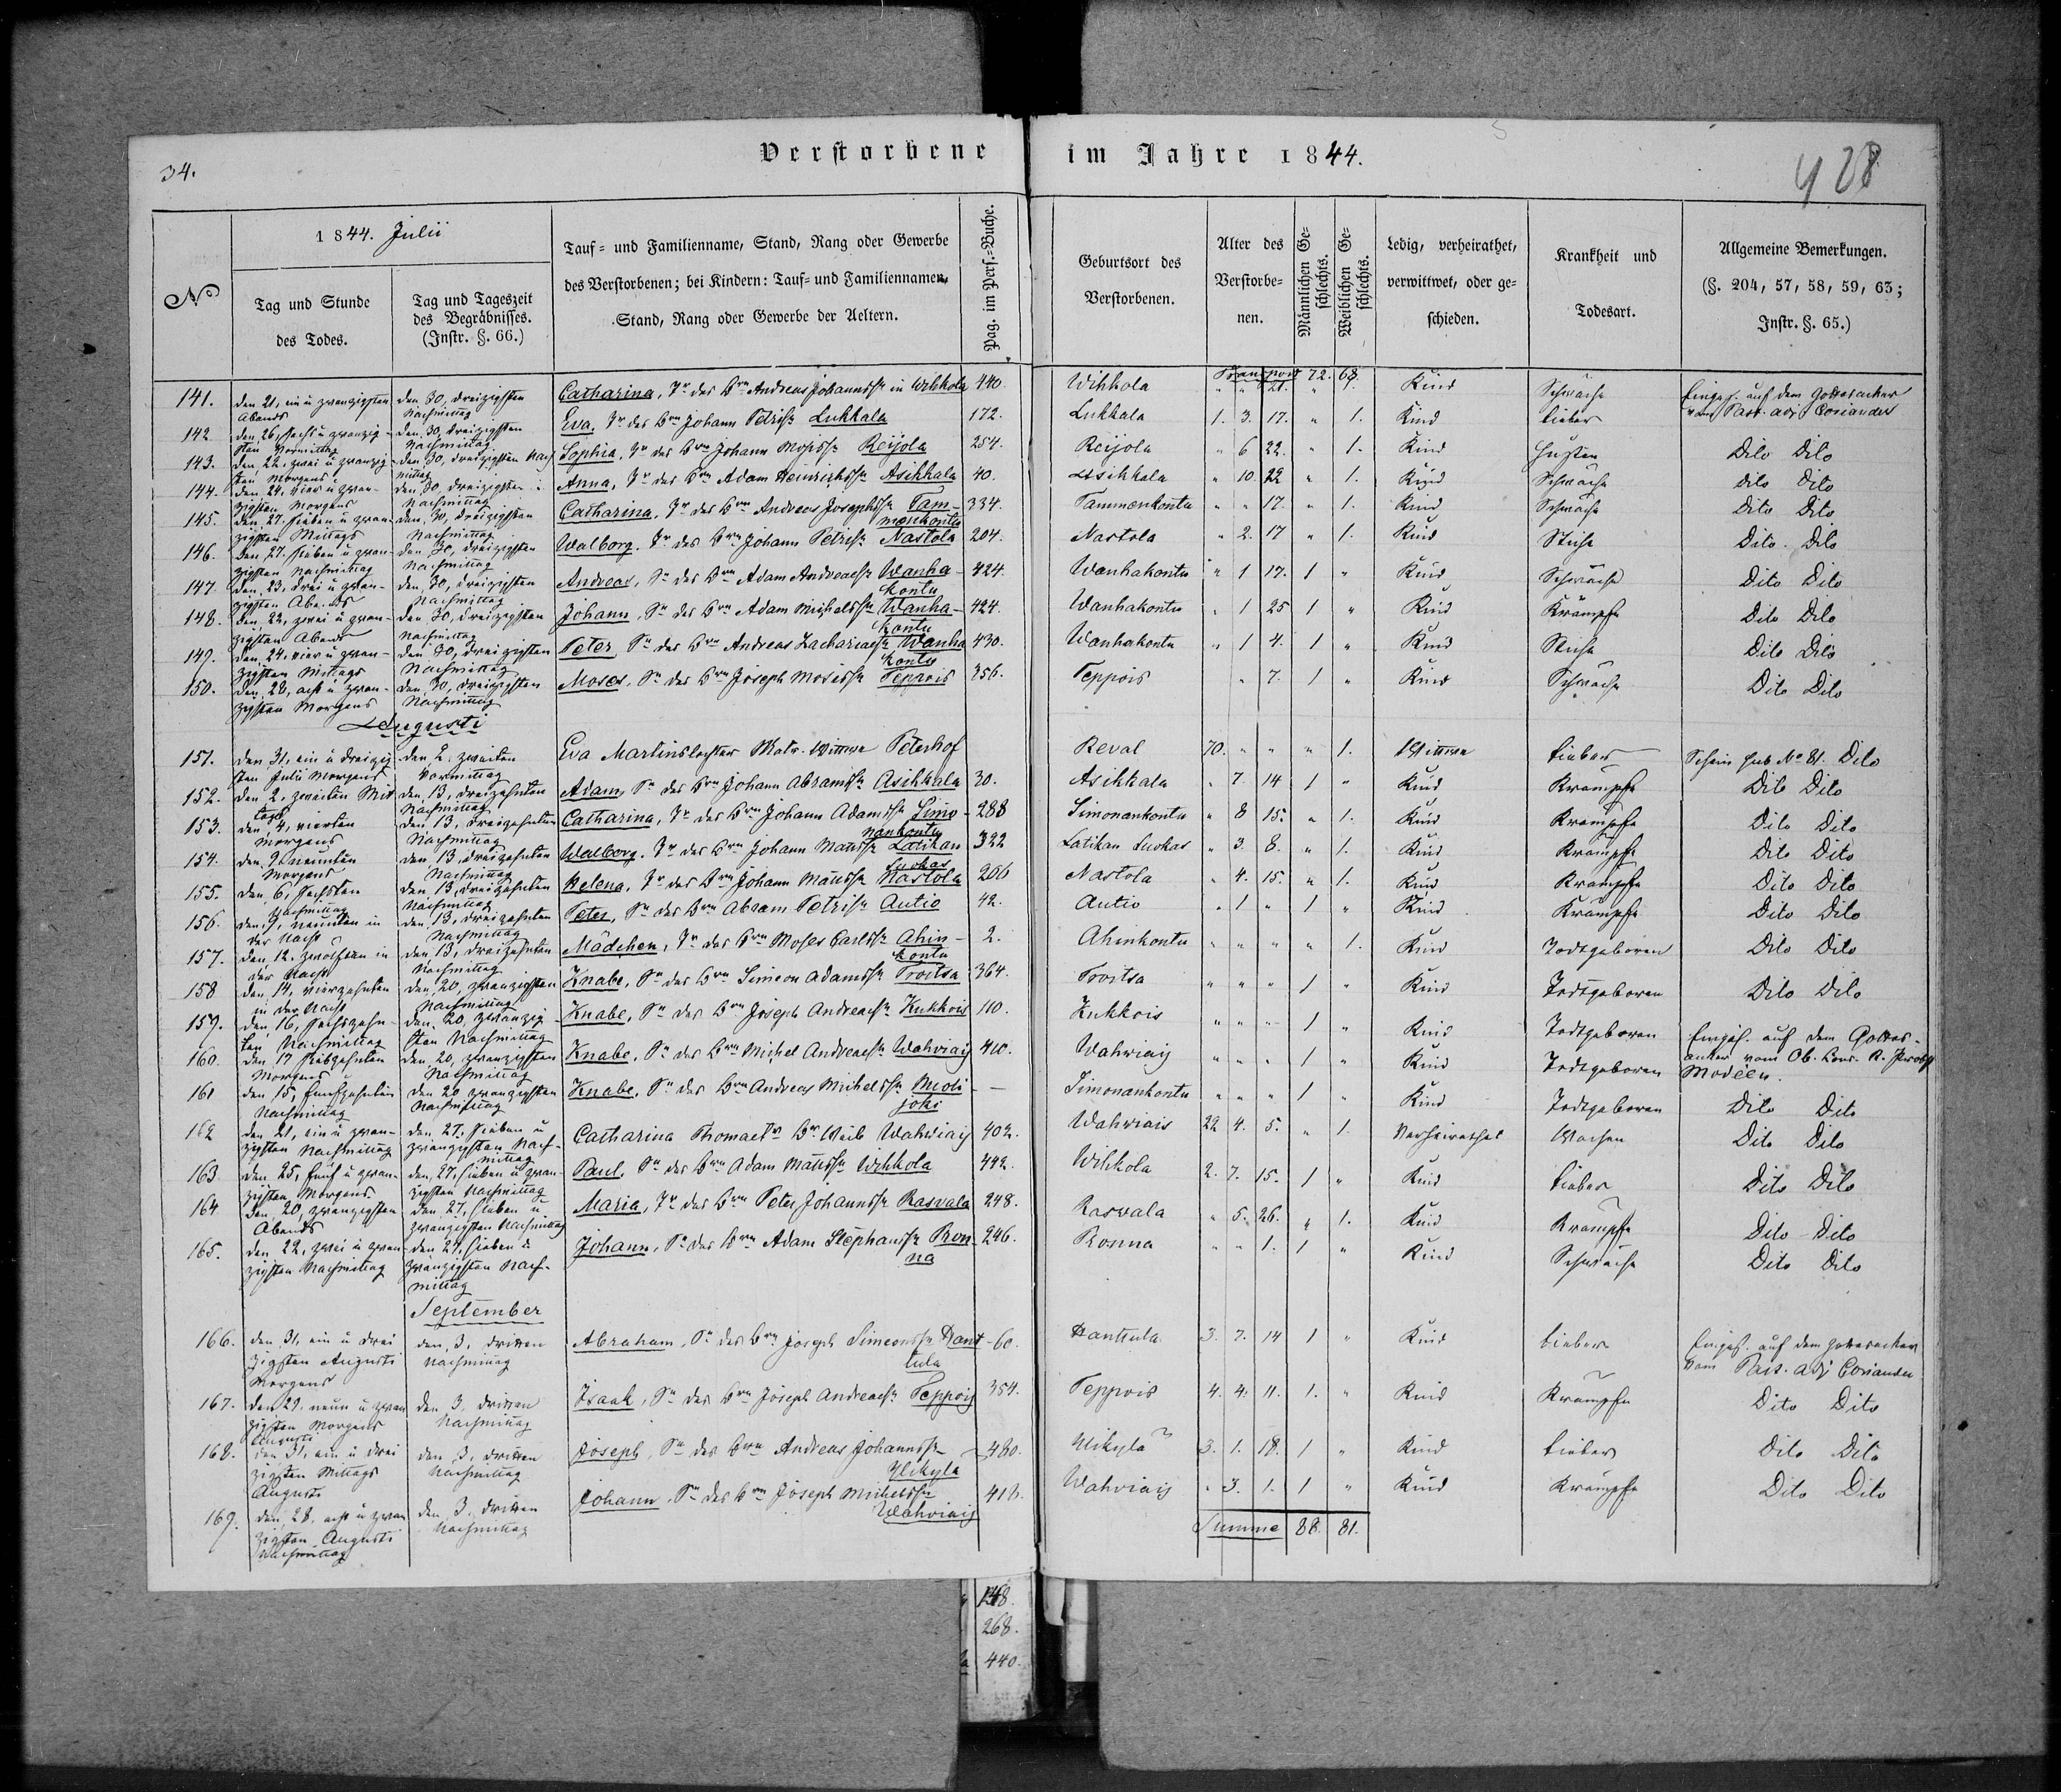 34.
Verstorbene im Jahre 1844.
428
1844. Julii
No
Tag und Stunde des Todes.
Tag und Tageszeit des Begräbnisses. (Instr. §. 66.)
Tauf- und Familienname, Stand, Rang oder Gewerbe
des Verstorbenen; bei Kindern: Tauf- und Familiennamen,
Stand, Rang oder Gewerbe der Aeltern.
Pag. im Pers.-Buche.
Geburtsort des Verstorbenen.
Alter des Verstorbenen.
Männlichen Geschlechts.
Weiblichen Geschlechts.
Ledig, verheirathet, verwittwet, oder geschieden.
Krankheit und Todesart.
Allgemeine Bemerkungen.
(§. 204, 57, 58, 59, 63;
Instr. §. 65.)
Transport 72. 68.
141. den 21, ein u zwanzigsten Abends den 30, dreizigsten Nachmittag Catharina, Tr des Brn Andreas Johannssn in Wihkola 440. Wihkola " " 21. " 1. Kind Schwäche Einges. auf dem Gottesacker vom Past. adj Coriander
142 den 26, sechs u zwanzigsten Vormittag den 30, dreizigsten Nachmittag Eva, Tr des Brn Johann Petrissn Lukkala 172. Lukkala 1. 3. 17. " 1. Kind Fieber
143. den 22, zwei u zwanzigsten Morgens den 30, dreizigsten Nachmittag Sophia, Tr des Brn Johann Mosissn Reijola 254. Reijola " 6 22. " 1. Kind Husten Dito Dito
144. den 24, vier u zwanzigsten Morgens den 30, dreizigsten Nachmittag Anna, Tr des Brn Adam Heinrichssn Asikkala 40. Asikkala " 10. 22 " 1. Kind Schwäche dito Dito
145. den 27. sieben u zwanzigsten Mittags den 30, dreizigsten Nachmittag Catharina, Tr des Brn Andreas Josephssn Tammenkontu 334. Tammenkontu " " 17. " 1. Kind Schwäche Dito Dito
146. den 27. sieben u zwanzigsten Nachmittag den 30, dreizigsten Nachmittag Walborg. Tr des Brn Johann Petrissn Nastola 204. Nastola " 2. 17 " 1. Kind Stiche Dito. Dito
147. den 23, drei u zwanzigsten Abends den 30, dreizigsten Nachmittag Andreas, Sn des Brn Adam Andreaessn Wanhakontu 424. Wanhakontu " 1 17. 1 " Kind Schwäche Dito Dito
148. den 22, zwei u zwanzigsten Abends den 30, dreizigsten Nachmittag Johann, Sn des Brn Adam Michelssn Wanhakontu 424. Wanhakontu " 1 25 1 " Kind Krämpfe Dito Dito
149. den 24, vier u zwanzigsten Mittags den 30, dreizigsten Nachmittag Peter, Sn des Brn Andreas Zachariaessn Wanhakontu 430. Wanhakontu " 1 4. 1 " Kind Stiche Dito Dito
150. den 28, acht u zwanzigsten Morgens den 30, dreizigsten Nachmittag Moses, Sn des Brn Joseph Mosissn Teppois 356. Teppois " 7. 1 " Kind Schwäche Dito Dito
Augusti
151. den 31, ein u dreizigsten Julii Morgens den 2. zweiten Vormittag Eva Martinstochter Matr. Wittwe Peterhof Reval 70. " " " 1. Wittwe Fieber Schein sub No 81. Dito
152. den 2. zweiten Mittags den 13, dreizehnten Nachmittag Adam, Sn des Brn Johann Abramssn Asikkala 30. Asikkala " 7. 14 1 " Kind Krämpfe Dito Dito
153. den 4, vierten Morgens den 13, dreizehnten Nachmittag Catharina, Tr des Brn Johann Adamssn Simonankontu 288 Simonankontu " 8 15. " 1. Kind Krämpfe Dito Dito
154. den 9 neunten Morgens den 13, dreizehnten Nachmittag Walborg. Tr des Brn Johann Maussn Latikan Luokas 322 Latikan Luokas " 3. 8. " 1. Kind Krämpfe Dito Dito
155. den 6, sechsten Nachmittag den 13, dreizehnten Nachmittag Helena, Tr des Brn Johann Maussn Nastola 206 Nastola " 4. 15. " 1. Kind Krämpfe Dito Dito
156. den 9, neunten in der Nacht den 13, dreizehnten Nachmittag Peter, Sn des Brn Abram Petrissn Autio 42. Autio " 1 " 1 " Kind Krämpfe Dito Dito
157. den 12. zwölften in der Nacht den 13, dreizehnten Nachmittag Mädchen, Tr des Brn Moses Carlssn Ahinkontu 2. Ahinkontu " " " " 1. Kind Todtgeboren Dito Dito
158 den 14, vierzehnten in der Nacht den 20, zwanzigsten Nachmittag Knabe, Sn des Brn Simeon Adamssn Troitsa 364. Troitsa " " " 1 " Kind Todtgeboren Dito Dito
159. den 16, sechszehnten Nachmittag den 20, zwanzigsten Nachmittag Knabe, Sn des Brn Joseph Andreaessn Kukkois 110. Kukkois " " " 1 " Kind Todtgeboren Eingес. auf dem Gottesacker vom Ob. Cons. R. Probst Modéen.
160. den 17 siebzehnten Morgens den 20, zwanzigsten Nachmittag Knabe, Sn des Brn Michel Andreaessn Wahviais 410. Wahwiais " " " 1 " Kind Todtgeboren
161 den 15, funfzehnten Nachmittag den 20 zwanzigsten Nachmittag Knabe, Sn des Brn Andreas Michelssn — Simonankontu " " " 1 " Kind Todtgeboren Dito Dito
162 den 21, ein u zwanzigsten Nachmittag den 27, sieben u zwanzigsten Nachmittag Catharina Thomaetr Br. Weib Wahwiais 402. Wahwiais 22 4. 5. " 1. Verheirathet Wochen Dito Dito
163 den 25, fünf u zwanzigsten Morgens den 27, sieben u zwanzigsten Nachmittag Paul, Sn des Brn Adam Maussn Wihkola 442. Wihkola 2. 7. 15. 1 " Kind Fieber Dito Dito
164 den 20, zwanzigsten Abends den 27, sieben u zwanzigsten Nachmittag Maria, Tr des Brn Peter Johannssn Rasvala 248. Rasvala " 5. 26. " 1. Kind Krämpfe Dito Dito
165. den 22, zwei u zwanzigsten Nachmittag den 27, sieben u zwanzigsten Nachmittag Johann, Sn des Brn Adam Stephanssn Ronna 246. Ronna " " 1. 1 " Kind Schwäche Dito Dito
September
166. den 31, ein u dreizigsten Augusti Morgens den, 3, dritten Nachmittag Abraham, Sn des Brn Joseph Simeonssn Hanttula 60. Hanttula 3. 7. 14 1 " Kind Fieber Einges. auf dem Gottesacker vom Past. adj Coriander
167. den 29. neun u zwanzigsten Morgens Augusti den 3, dritten Nachmittag Isaak, Sn des Brn Joseph Andreaessn Teppois 354. Teppois 4. 4. 11. 1. " Kind Krämpfe Dito Dito
168. den 31, ein u dreizigsten Mittags Augusti den 3, dritten Nachmittag Joseph, Sn des Brn Andreas Johannssn Ylikyla 480. Ylikyla 3. 1. 18. 1 " Kind Fieber Dito Dito
169. den 28. acht u zwanzigsten Augusti Nachmittag den 3, dritten Nachmittag Johann, Sn des Brn Joseph Michelssn Wahviais 418. Wahviais " 3. 1. 1 " Kind Krämpfe Dito Dito
Summe 88. 81.
148.
268.
440.